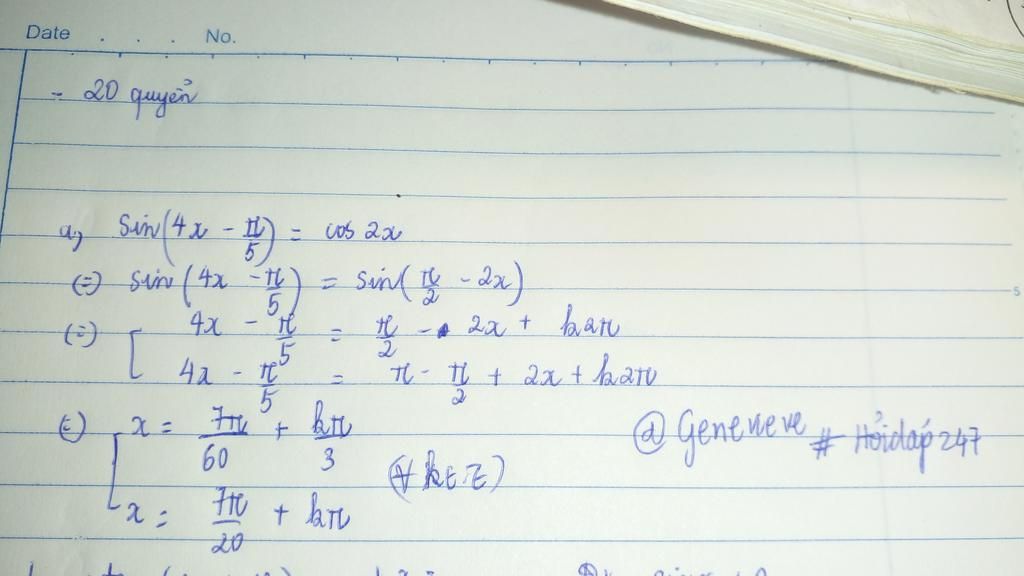 Date . . . . No.
- 20 quyển
a, sin(4x - π/5) = cos 2x
(=) sin(4x - π/5) = sin(π/2 - 2x)
(=) [ 4x - π/5 = π/2 - 2x + k2π
4x - π/5 = π - π/2 + 2x + k2π
(=) [ x = 7π/60 + kπ/3
(∀ k ∈ Z)
x = 7π/20 + kπ
@ Geneveve # Hỏidap247
s